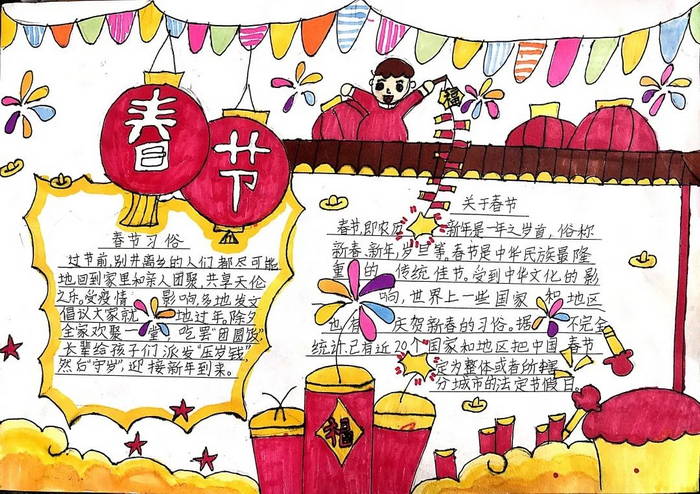 春节
福
春节习俗
过节前,别井离乡的人们都尽可能
地回到家里和亲人团聚,共享天伦
之乐。受疫情影响,多地发文
倡议大家就地过年。除夕
全家欢聚一堂,吃罢"团圆饭",
长辈给孩子们派发"压岁钱",
然后"守岁",迎接新年到来。
关于春节
春节,即农历新年是一年之岁首,俗称
新春、新年,岁旦等,春节是中华民族最隆
重的传统佳节。受到中华文化的影
响,世界上一些国家和地区
也有庆贺新春的习俗。据不完全
统计.已有近20个国家和地区把中国春节
定为整体或者所辖
分城市的法定节假日。
福